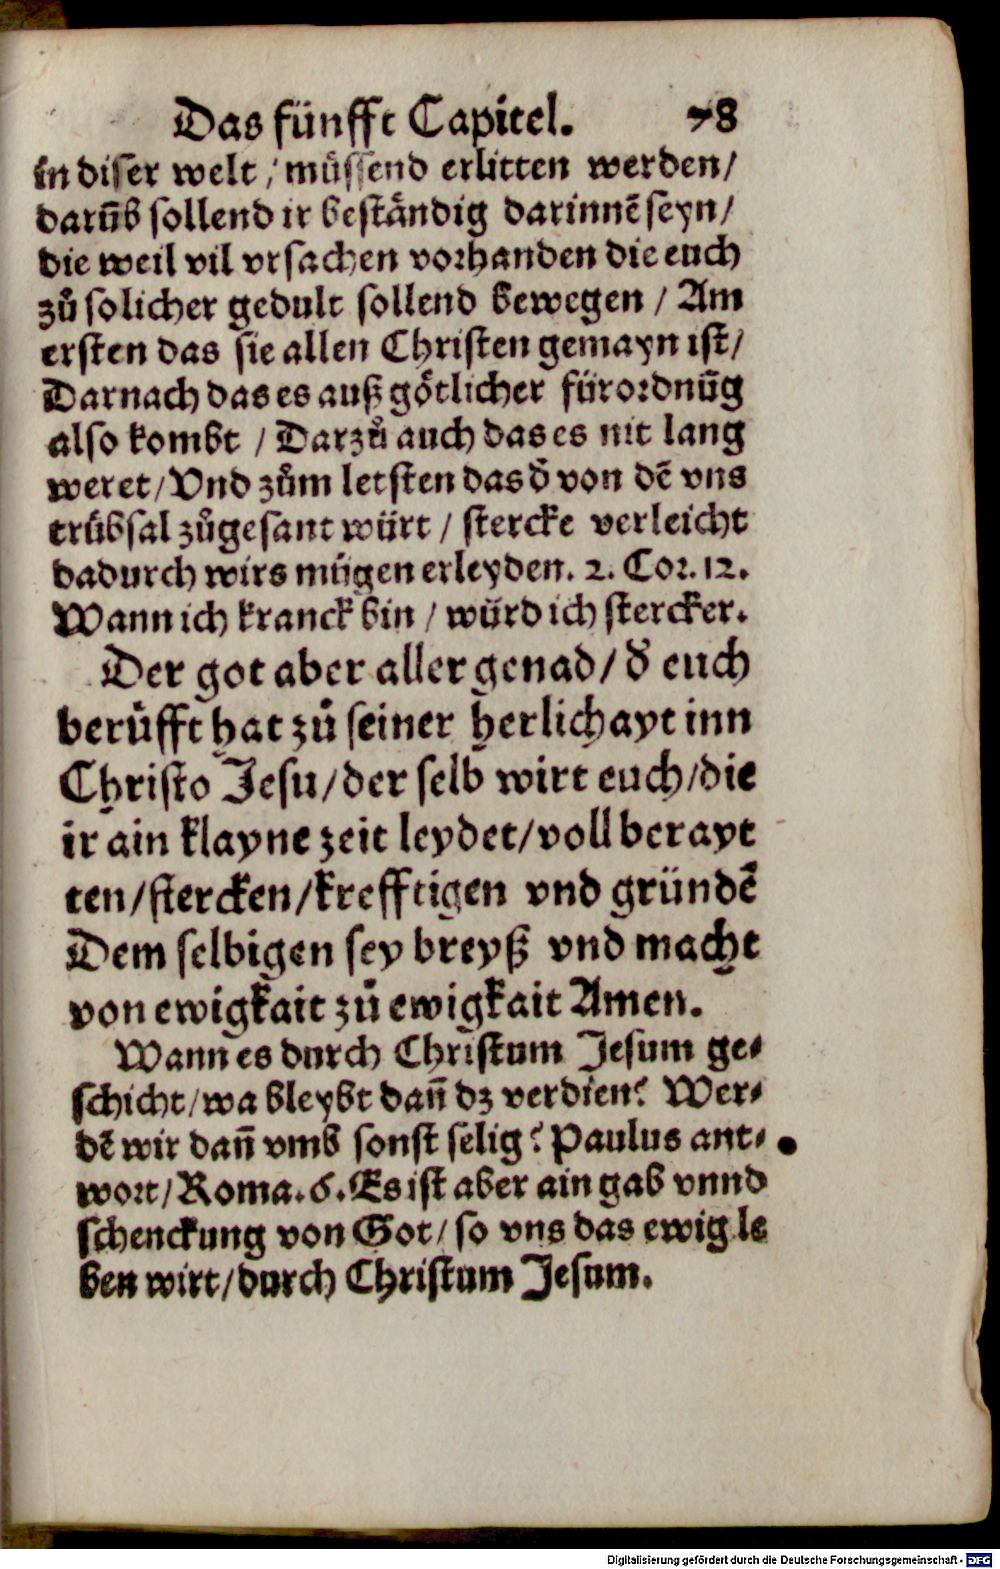 Das fünfft Capitel. 78
in diser welt / müssend erlitten werden /
darūb sollend ir beständig darinnē seyn /
die weil vil vrsachen vorhanden die euch
zů solicher gedult sollend bewegen / Am
ersten das sie allen Christen gemayn ist /
Darnach das es auß götlicher fürordnūg
also kombt / Darzů auch das es nit lang
weret / Vnd zům letsten das d̄ von dē vns
trübsal zůgesant würt / stercke verleicht
dadurch wirs mügen erleyden. 2. Cor. 12.
Wann ich kranck bin / würd ich stercker.
Der got aber aller genad / d̄ euch
berüfft hat zů seiner herlichayt inn
Christo Jesu / der selb wirt euch / die
ir ain klayne zeit leydet / voll berayt
ten / stercken / krefftigen vnd gründē
Dem selbigen sey breyß vnd macht
von ewigkait zů ewigkait Amen.
Wann es durch Christum Jesum ge⸗
schicht / wa bleybt dañ dz verdien? Wer⸗
dē wir dañ vmb sonst selig? Paulus ant⸗
wort / Roma. 6. Es ist aber ain gab vnnd
schenckung von Got / so vns das ewig le
ben wirt / durch Christum Jesum.
Digitalisierung gefördert durch die Deutsche Forschungsgemeinschaft - DFG